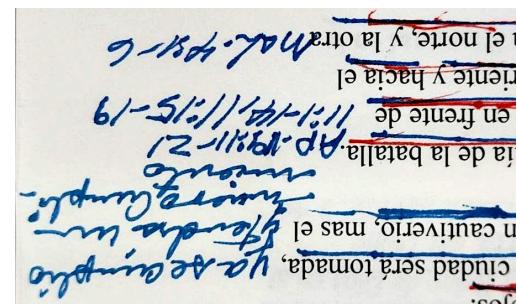 ojos:
ciudad será tomada, ya se cumplió
n cautiverio, mas el y tendrá un
nuevo cumpli-
miento
ía de la batalla. Ap. 19:11-21
en frente de 11:1-14, 11:15-19
riente y hacia el
el norte, y la otra Mal.